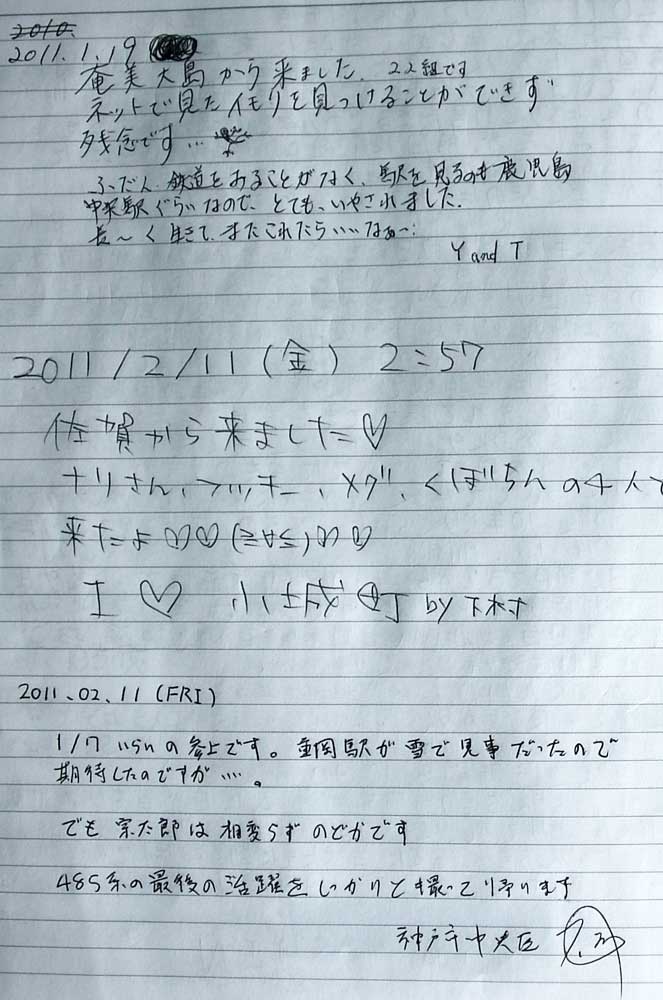 2010.
2011.1.19
奄美大島から来ました. 22組です
ネットで見たイモリを見つけることができず
残念です…
ふだん鉄道をあることがなく、駅を見るのも鹿児島
中央駅ぐらいなので、とても、いやされました.
長〜く生きて、またこれたらいいなぁ〜.
Y and T
2011/2/11(金) 2:57
佐賀から来ました♡
ナリさん、フッキー、メグ、くぼちんの4人で
来たよ♡♡(≧∀≦)♡♡
I ♡ 小城町 by 下村
2011.02.11(FRI)
1/7 いらいの参上です。 重岡駅が雪で見事だったので
期待したのですが….。
でも 宗太郎は相変らずのどかです
485系の最後の活躍をしっかりと撮って
神戸市中央区